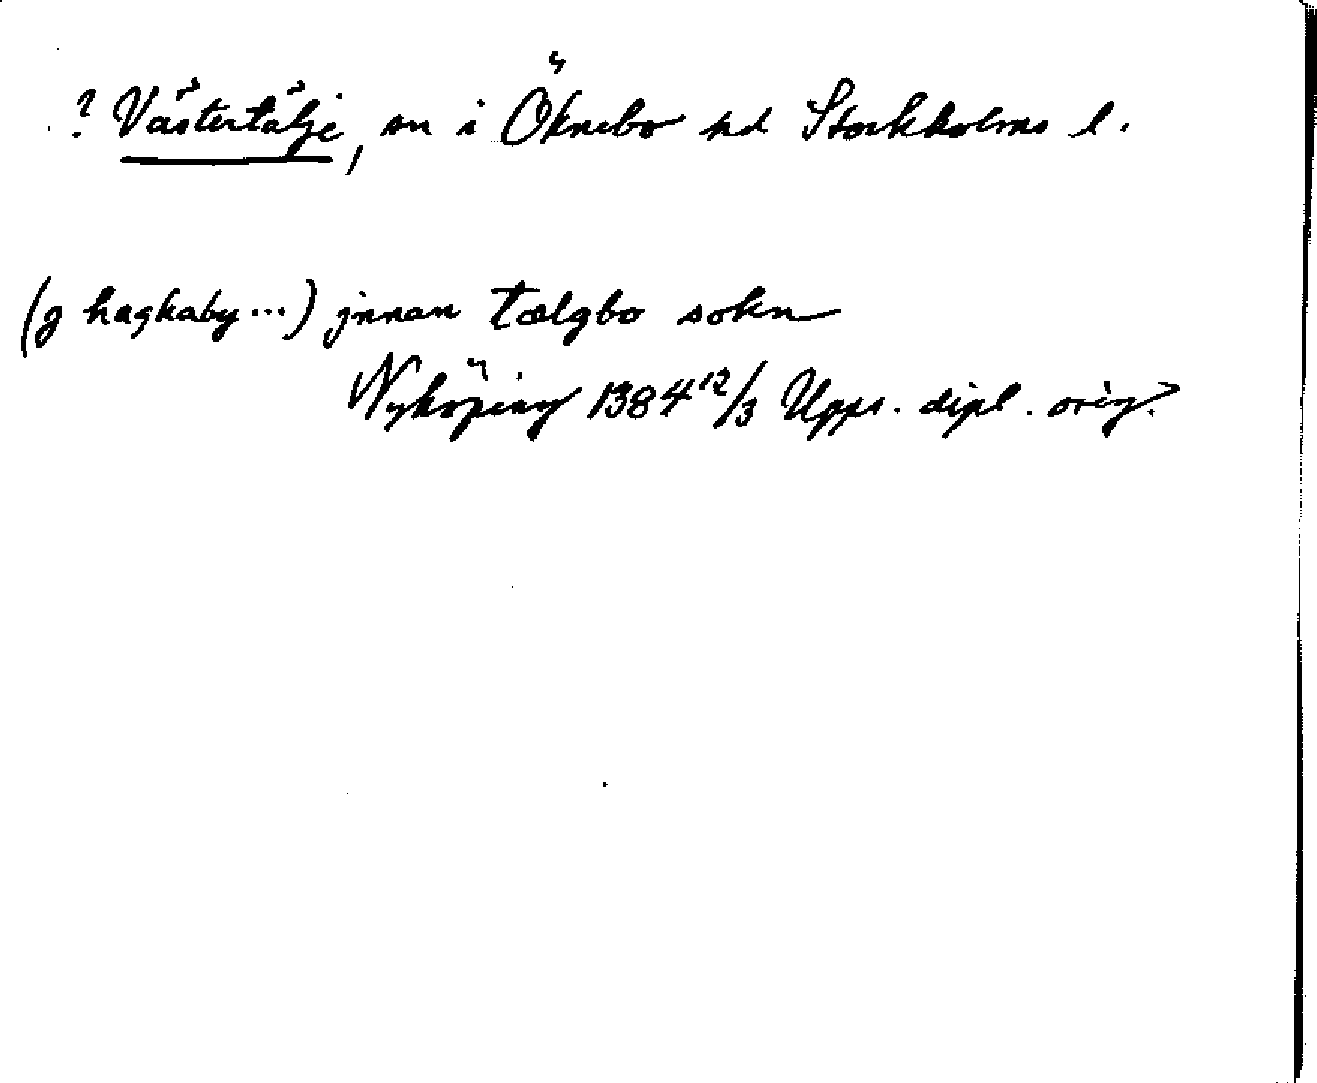 ? Västertälje, sn i Öknebo hd Stockholms l.
(g hagkaby...) jnnan tælgbo sokn
Nyköping 1384 12/3 Upps. dipl. orig.